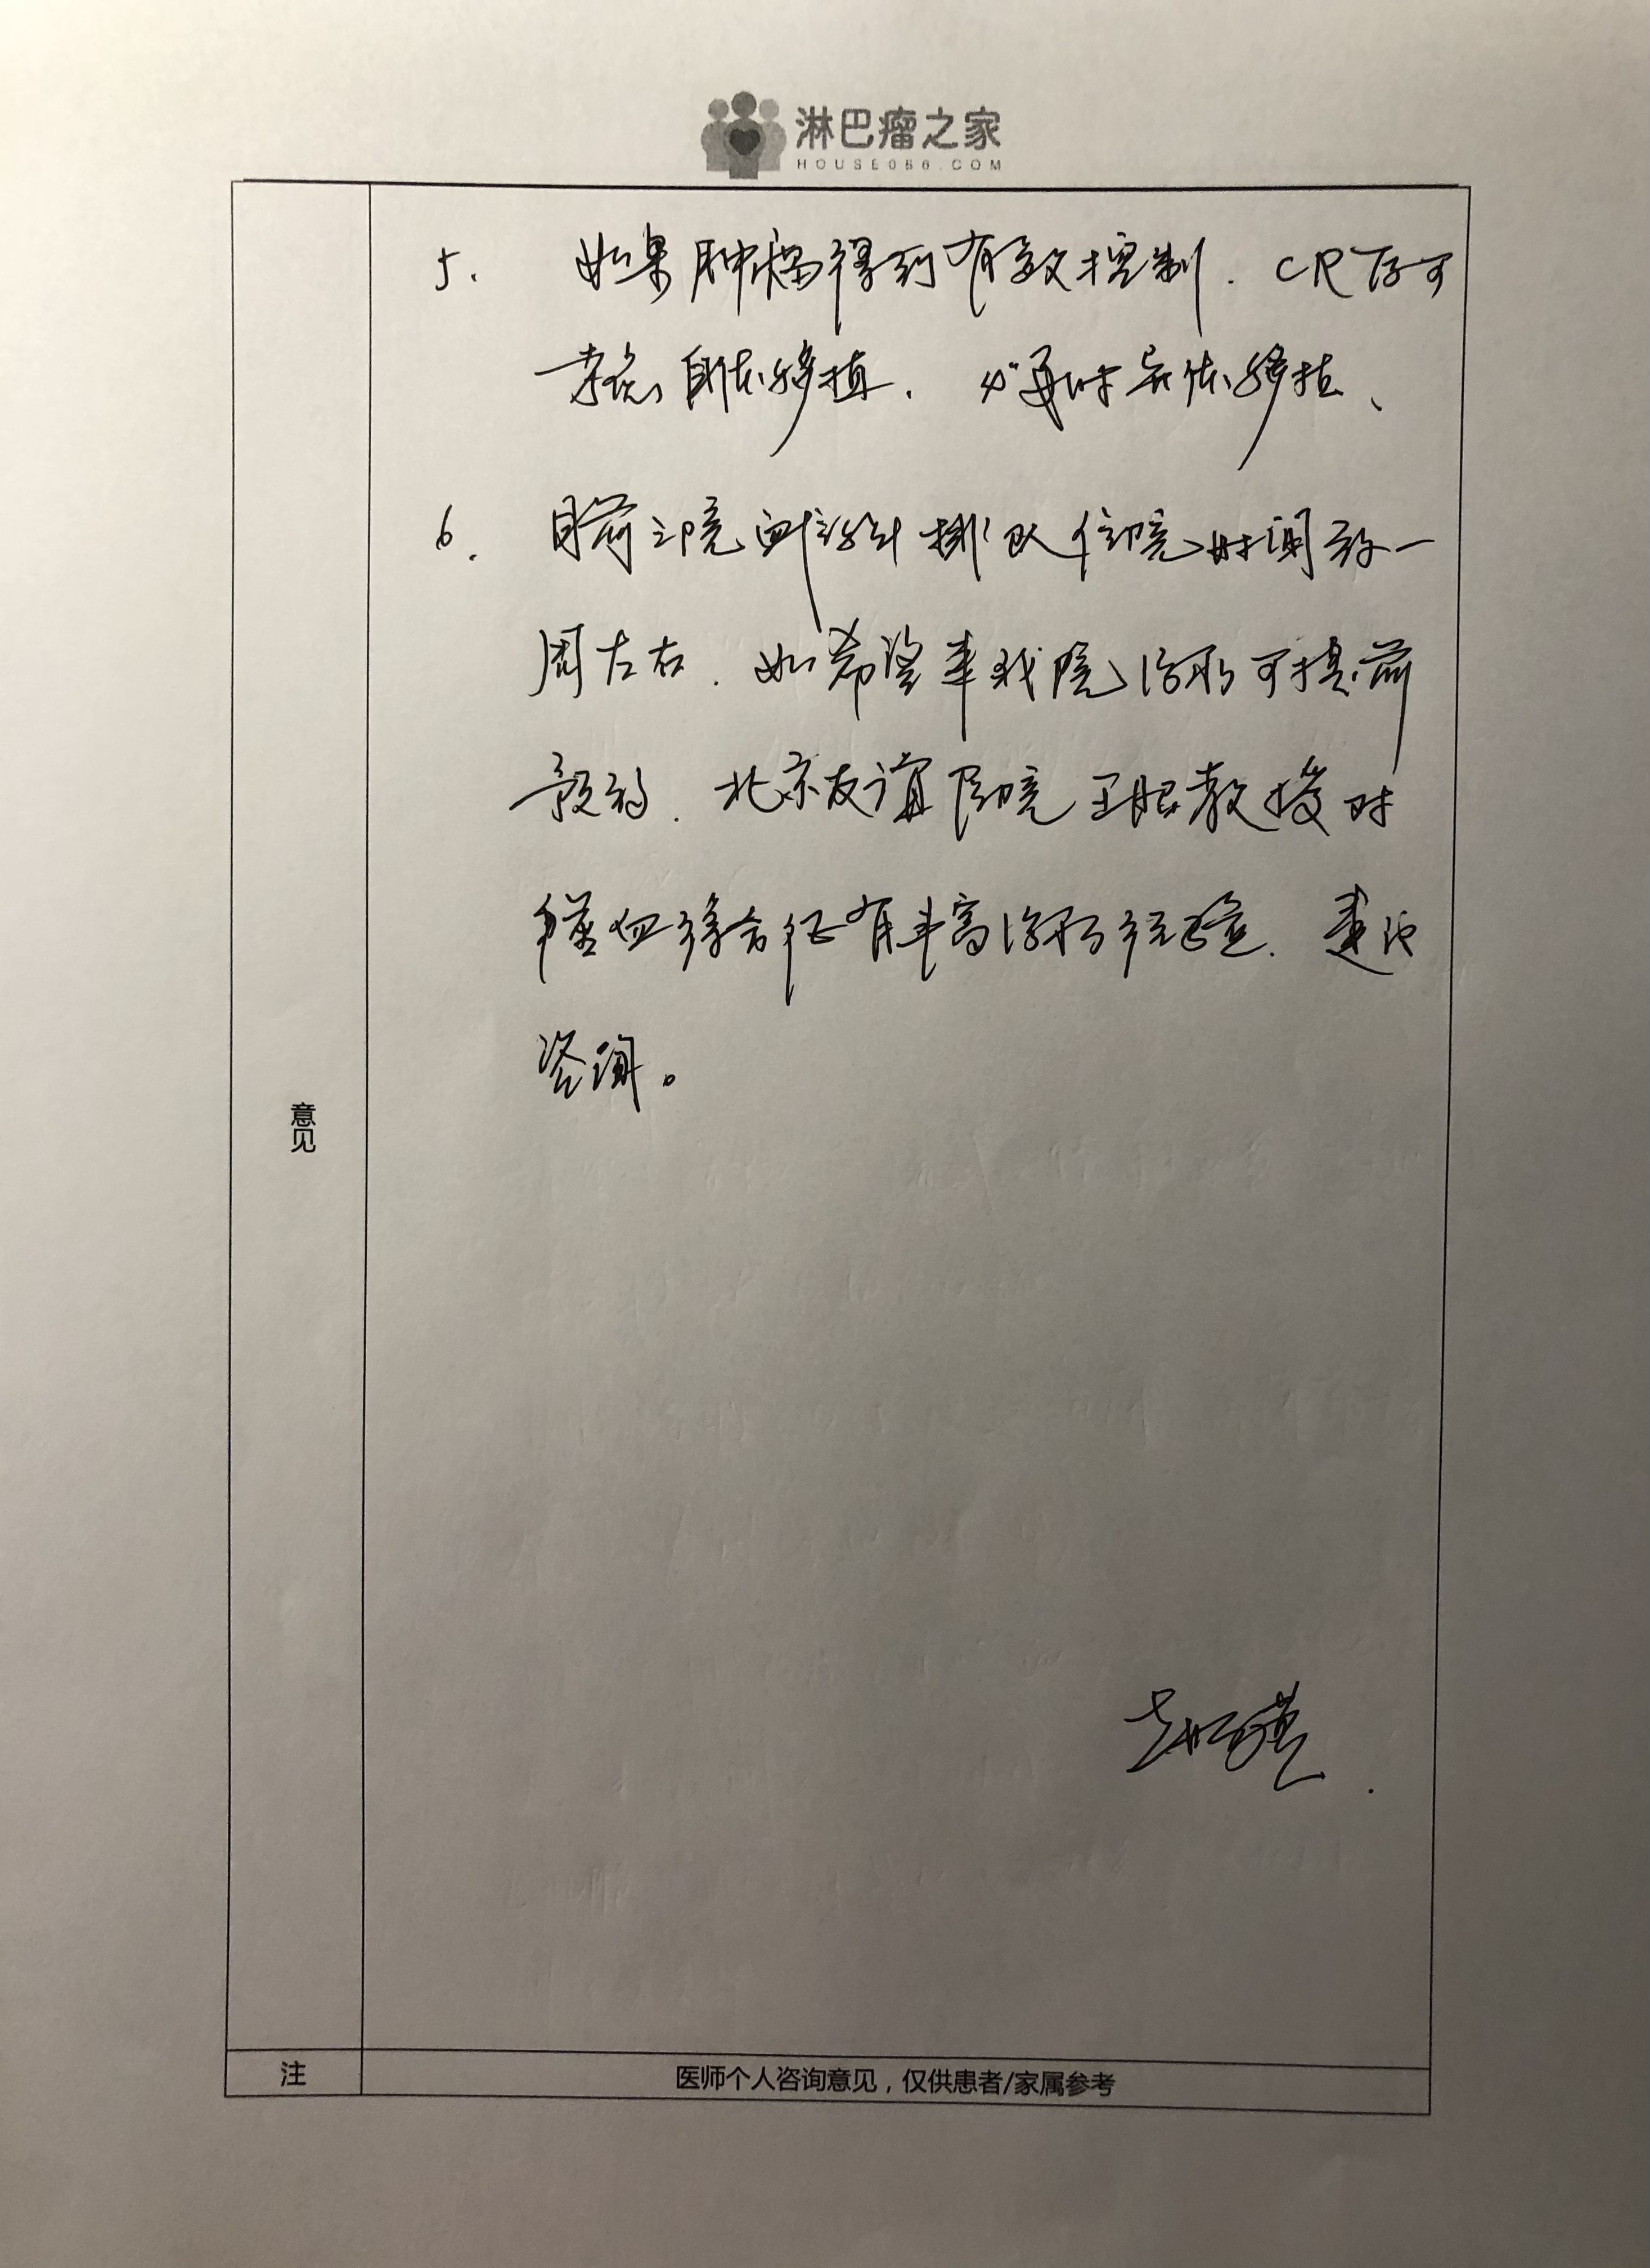 淋巴瘤之家
HOUSE086.COM
5. 如果肿瘤得到有效控制. CR后可
考虑自体移植. 必要时异体移植、
6. 目前我院血液科排队住院时间为一
周左右. 如希望来我院治疗可提前
预约. 北京友谊医院王昭教授对
噬血综合征有丰富治疗经验. 建议
咨询。
意见
注
医师个人咨询意见，仅供患者/家属参考